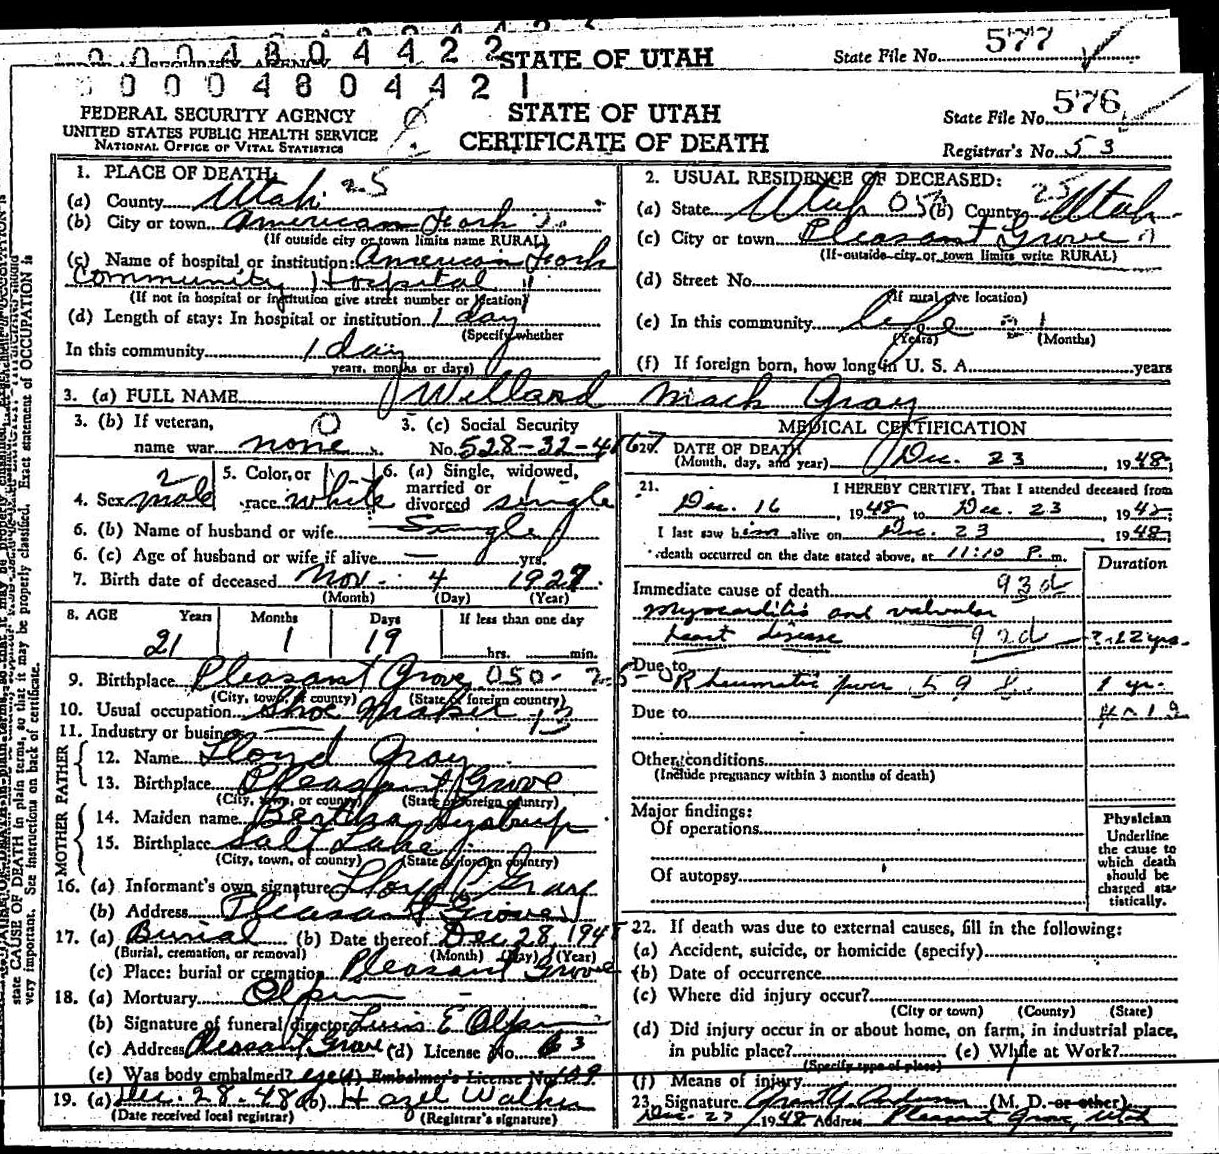 0 0 0 4 8 0 4 4 2 2 STATE OF UTAH State File No. 577
0 0 0 4 8 0 4 4 2 1
FEDERAL SECURITY AGENCY STATE OF UTAH State File No. 576
UNITED STATES PUBLIC HEALTH SERVICE CERTIFICATE OF DEATH
NATIONAL OFFICE OF VITAL STATISTICS Registrar's No. 53
1. PLACE OF DEATH:
(a) County Utah 25
(b) City or town American Fork
(If outside city or town limits name RURAL)
(c) Name of hospital or institution: American Fork
Community Hospital
(If not in hospital or institution give street number or location)
(d) Length of stay: In hospital or institution 1 day
(Specify whether
In this community 1 day
years, months or days)
2. USUAL RESIDENCE OF DECEASED:
(a) State Utah 05 (b) County Utah 25
(c) City or town Pleasant Grove
(If outside city or town limits write RURAL)
(d) Street No.
(If rural give location)
(e) In this community life
(Years) (Months)
(f) If foreign born, how long in U. S. A. years
3. (a) FULL NAME Willard Mack Gray
3. (b) If veteran, 3. (c) Social Security
name war none No. 528-32-4167
4. Sex male 5. Color, or race white 6. (a) Single, widowed, married or divorced single
6. (b) Name of husband or wife Single
6. (c) Age of husband or wife if alive yrs.
7. Birth date of deceased Nov. 4 1927
(Month) (Day) (Year)
8. AGE Years Months Days If less than one day
21 1 19 hrs. min.
9. Birthplace Pleasant Grove 050-
(City, town, or county) (State or foreign country)
10. Usual occupation Shoe Maker
11. Industry or business
FATHER
12. Name Lloyd Gray
13. Birthplace Pleasant Grove
(City, town, or county) (State or foreign country)
MOTHER
14. Maiden name Bertha
15. Birthplace Salt Lake
(City, town, or county) (State or foreign country)
16. (a) Informant's own signature Lloyd Gray
(b) Address Pleasant Grove
17. (a) Burial (b) Date thereof Dec. 28, 1948
(Burial, cremation, or removal) (Month) (Day) (Year)
(c) Place: burial or cremation Pleasant Grove
18. (a) Mortuary Olpin
(b) Signature of funeral director Luis E Olpin
(c) Address Pleasant Grove (d) License No. 63
(e) Was body embalmed? yes (f) Embalmer's License No. 109
19. (a) Dec. 28-48 (b) Hazel Walker
(Date received local registrar) (Registrar's signature)
MEDICAL CERTIFICATION
20. DATE OF DEATH
(Month, day, and year) Dec. 23, 1948;
21. I HEREBY CERTIFY, That I attended deceased from
Dec. 16, 1948 to Dec. 23, 1948
I last saw him alive on Dec. 23, 1948;
death occurred on the date stated above, at 11:10 P. m.
Duration
Immediate cause of death 93d
Myocarditis and valvular
heart disease 92d ?-12 yrs.
Due to Rheumatic fever 1 yr.
Due to
Other conditions
(Include pregnancy within 3 months of death)
Major findings:
Of operations
Of autopsy
Physician
Underline
the cause to
which death
should be
charged sta-
tistically.
22. If death was due to external causes, fill in the following:
(a) Accident, suicide, or homicide (specify)
(b) Date of occurrence
(c) Where did injury occur?
(City or town) (County) (State)
(d) Did injury occur in or about home, on farm, in industrial place,
in public place? (e) While at Work?
(Specify type of place)
(f) Means of injury
23. Signature Grant Y. Anderson (M. D. or other)
Dec. 27 1948 Address Pleasant Grove, Utah
state CAUSE OF DEATH in plain terms, so that it may be properly classified. Exact statement of OCCUPATION is
very important. See instructions on back of certificate.